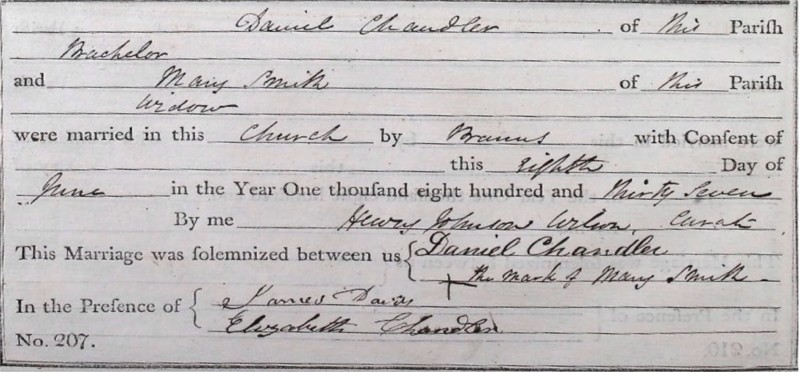 Daniel Chandler of this Pariſh
Bachelor
and Mary Smith of this Pariſh
Widow
were married in this Church by Banns with Conſent of
this eighth Day of
June in the Year One thouſand eight hundred and thirty Seven
By me Henry Johnson Wilson, Curate
This Marriage was ſolemnized between us { Daniel Chandler
+ the mark of Mary Smith
In the Preſence of { James Davis
Elizabeth Chandler
No. 207.